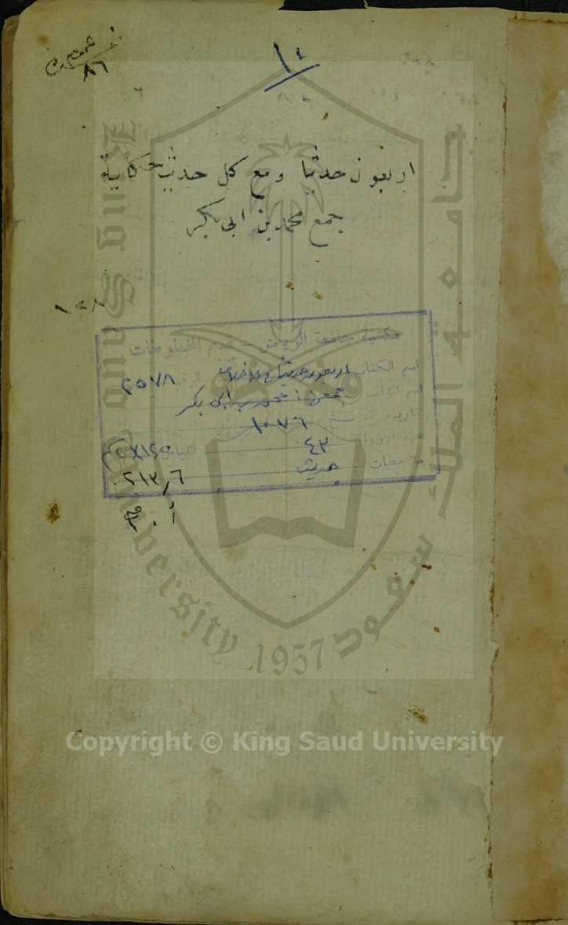 ١٤
اربعون حديثا ومع كل حديث حكاية
جمع محمد بن ابي بكر
مكتبة جامعة الرياض - قسم المخطوطات
اسم الكتاب اربعون حديثا ٢٥٧٨
اسم المؤلف محمد بن ابي بكر
١٠٧٦
٤٣
حديث
٢١٣٫٦
أ .
جامعة الملك سعود
King Saud University
1957
Copyright © King Saud University